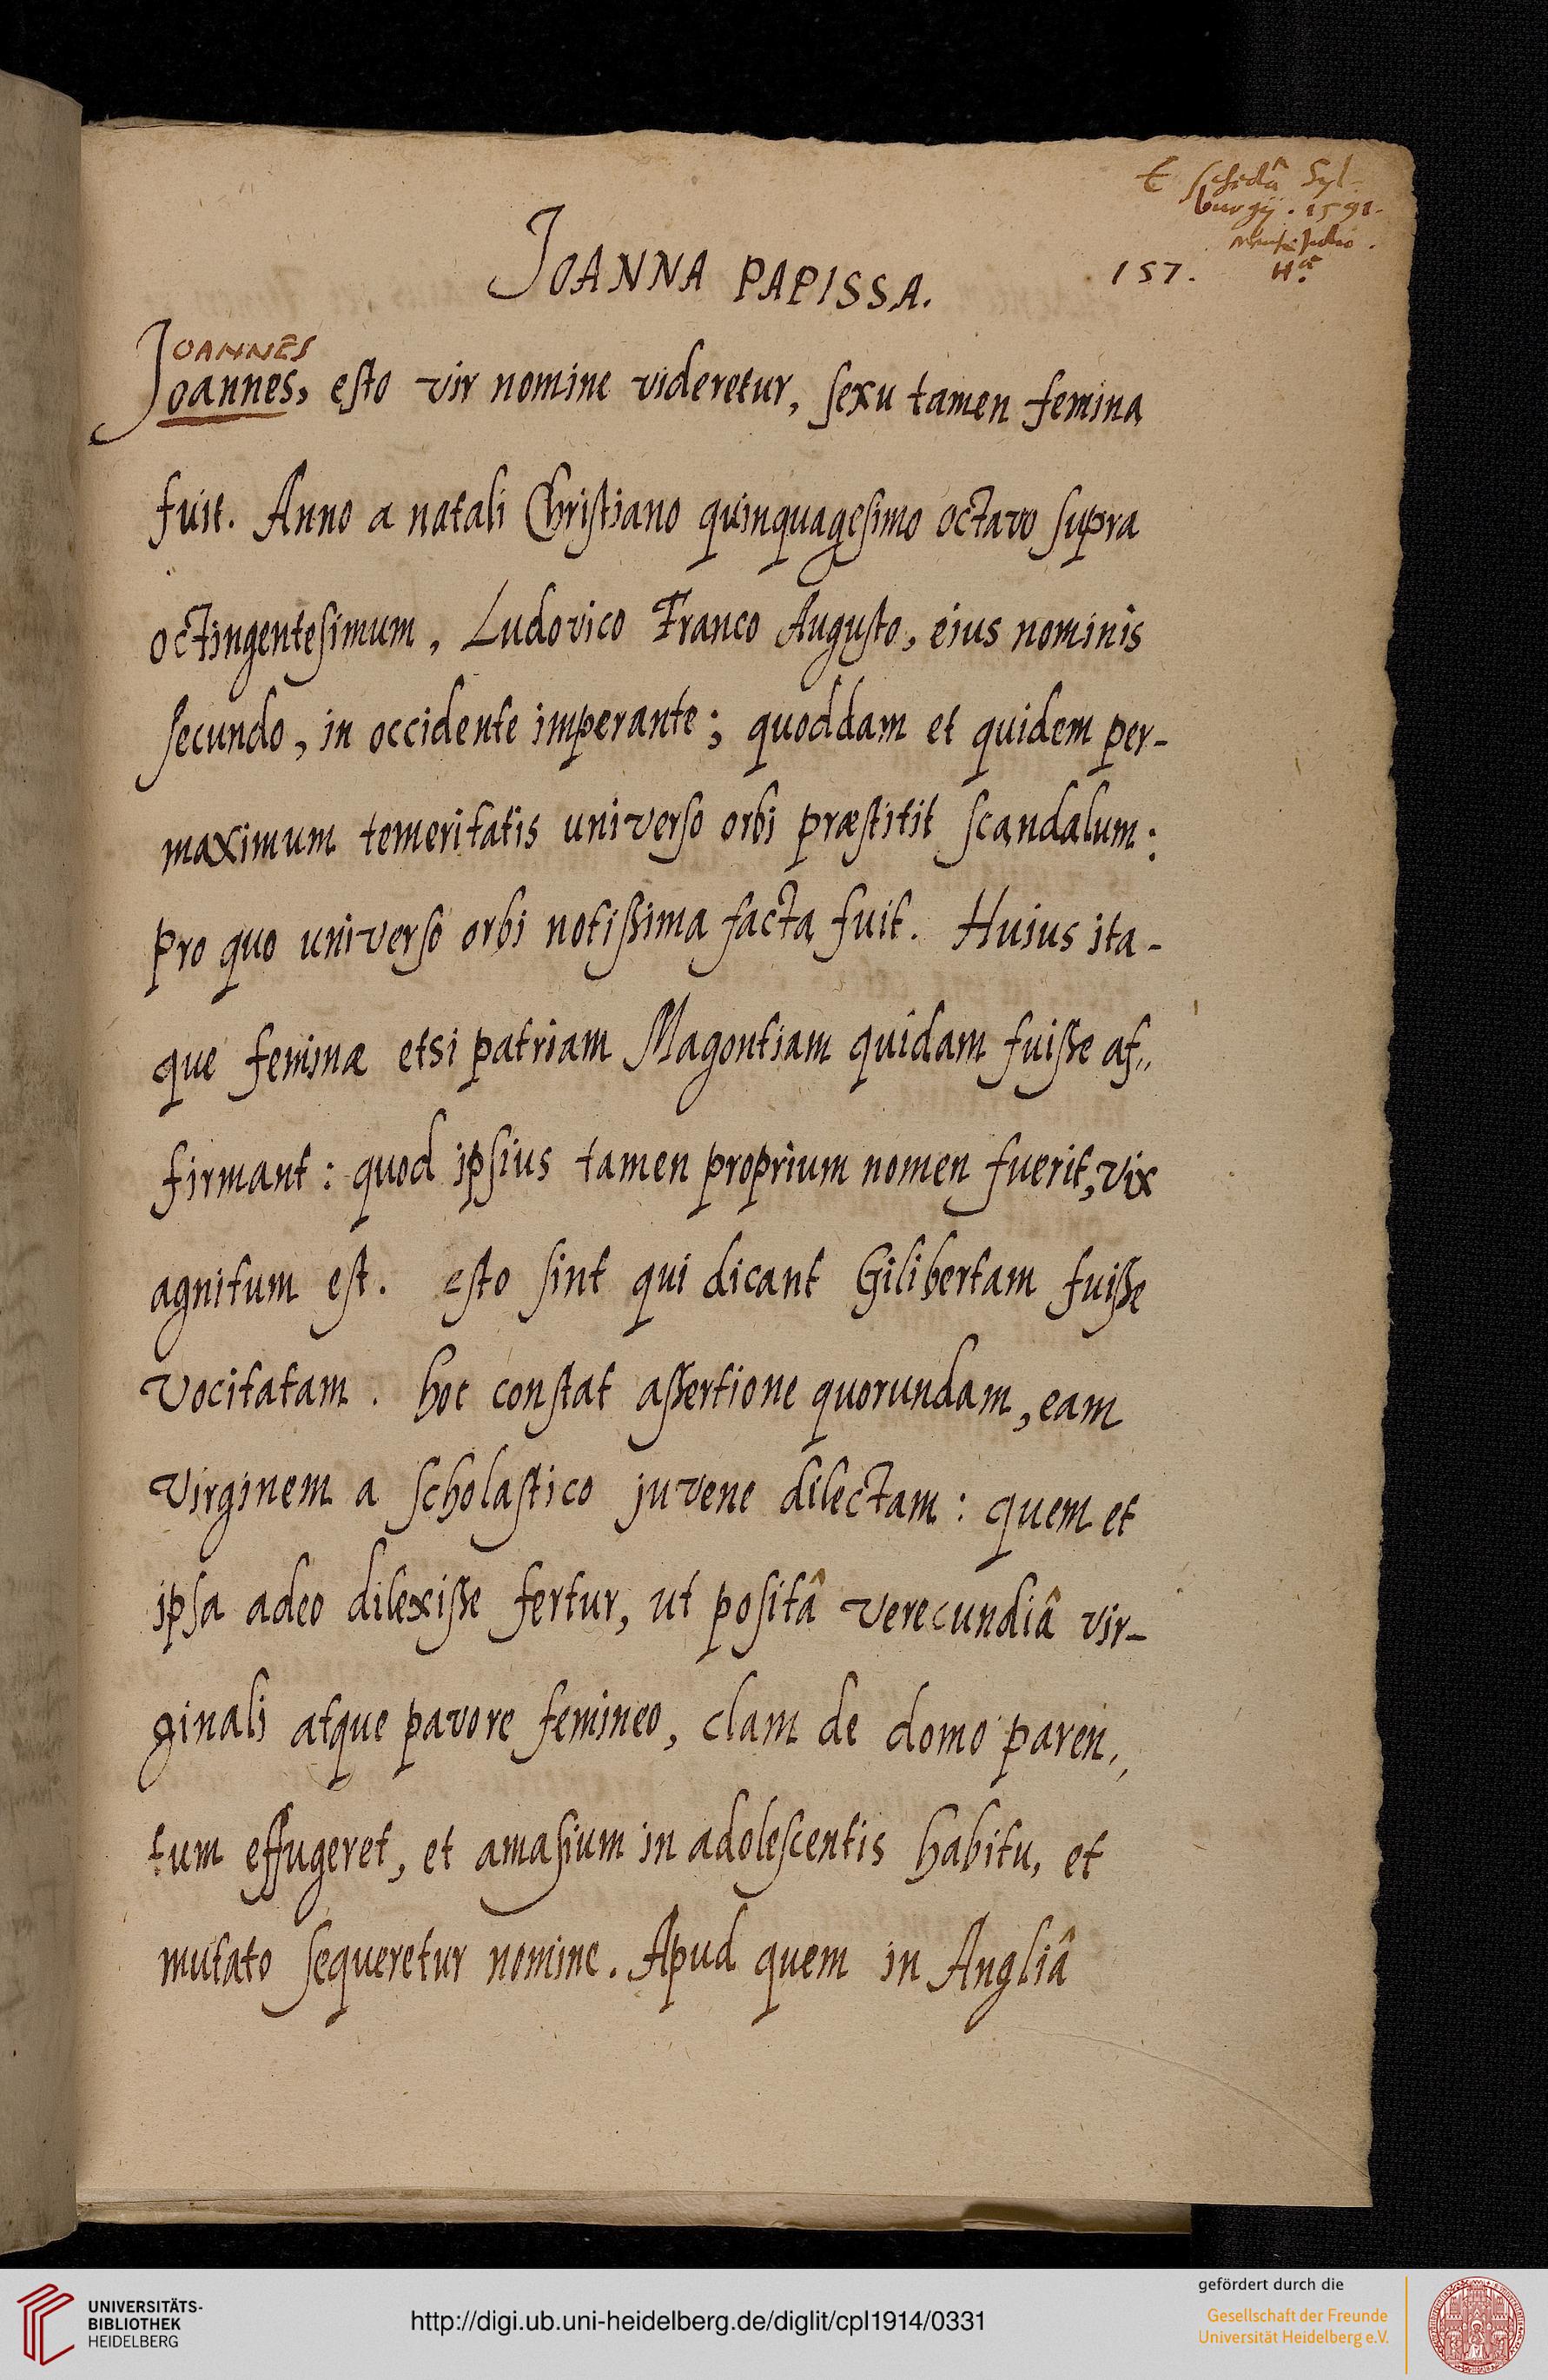 E schedâ Syl-
burgij. 1591.
mense Julio.
JOANNA PAPISSA.
157.
OANNES
Joannes, esto vir nomine videretur, sexu tamen femina
fuit. Anno a natali Christiano quinquagesimo octavo supra
octingentesimum, Ludovico Franco Augusto, eius nominis
secundo, in occidente imperante; quoddam et quidem per-
maximum temeritatis universo orbi præstitit scandalum:
pro quo universo orbi notißima facta fuit. Huius ita-
que feminæ etsi patriam Magontiam quidam fuiße af„
firmant: quod ipsius tamen proprium nomen fuerit, vix
agnitum est. esto sint qui dicant Gilibertam fuiße
vocitatam. hoc constat aßertione quorundam, eam
virginem a scholastico juvene dilectam: quem et
ipsa adeo dilexiße fertur, ut positâ verecundiâ vir-
ginali atque pavore femineo, clam de domo paren„
tum effugeret, et amasium in adolescentis habitu, et
mutato sequeretur nomine. Apud quem in Angliâ
UNIVERSITÄTS-
BIBLIOTHEK
HEIDELBERG
http://digi.ub.uni-heidelberg.de/diglit/cpl1914/0331
gefördert durch die
Gesellschaft der Freunde
Universität Heidelberg e.V.